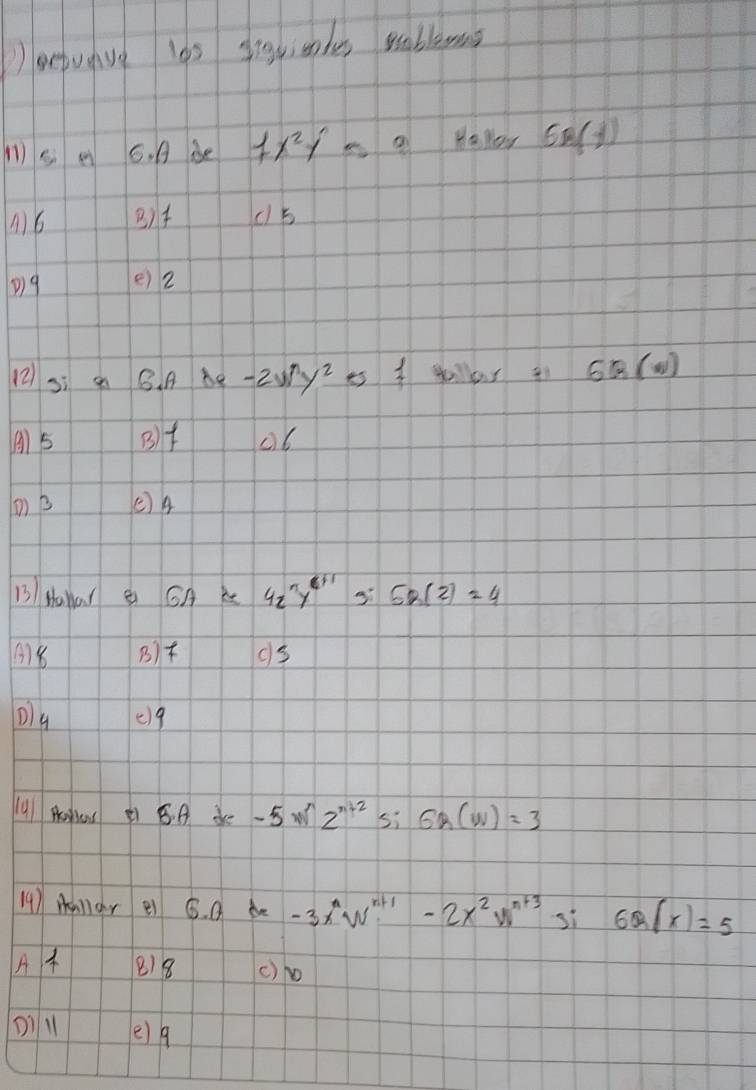 los siguientes problemas
11) Si el G.A de 7x²yⁿ es 9 Hallar GR(y)
A) 6 B) 7 C) 5
D) 9 e) 2
12) Si el G.A de -2wⁿy² es 7 Hallar el GR(w)
A) 5 B) 7 C) 6
D) 3 e) 4
13) Hallar el GA de 4zⁿyⁿ⁺¹ si GR(z) = 4
A) 8 B) 7 C) 5
D) 4 e) 9
14) Hallar el G.A de -5wⁿzⁿ⁺² si GR(w) = 3
14) Hallar el G.A de -3xⁿwⁿ⁺¹ - 2x²wⁿ⁺³ si GR(x) = 5
A 7 B) 8 c) 10
D) 11 e) 9